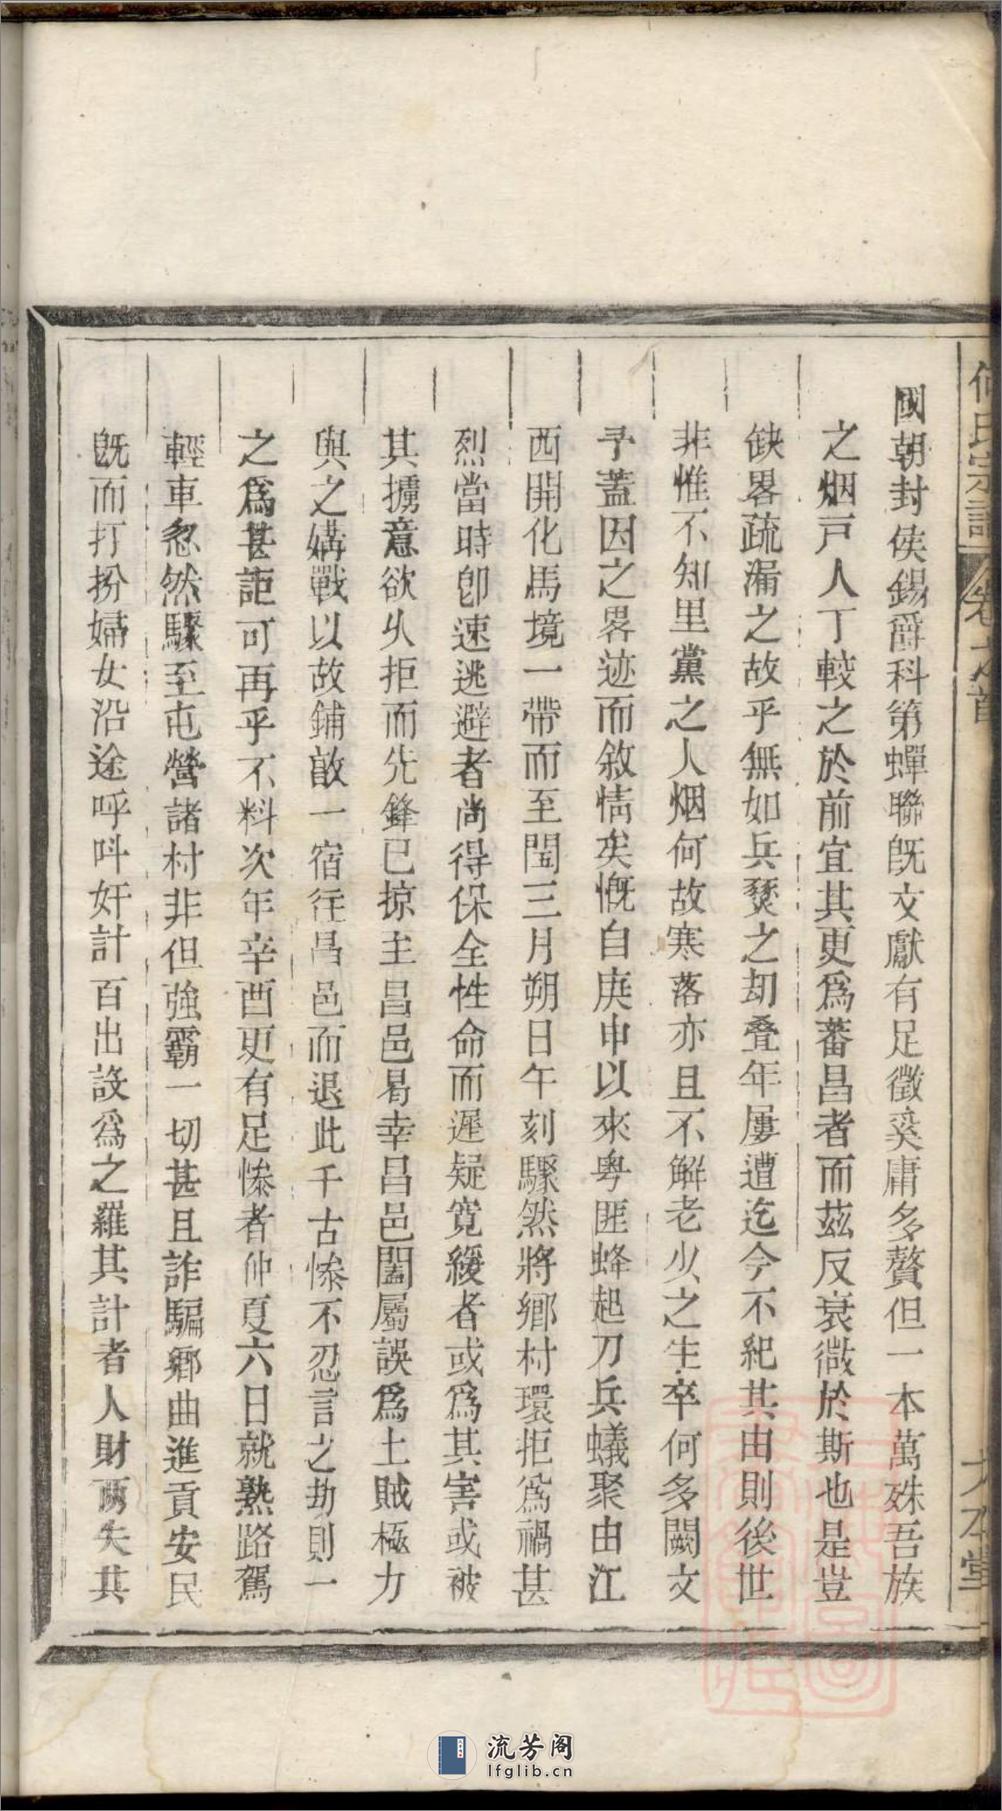 國朝封侯錫爵科第蟬聯旣文獻有足徵奚庸多贅但一本萬殊吾族
之烟戸人丁較之於前宜其更爲蕃昌者而茲反衰微於斯也是豈
缺畧疏漏之故乎無如兵燹之刧叠年屢遭迄今不紀其由則後世
非惟不知里黨之人烟何故寒落亦且不解老少之生卒何多闕文
予蓋因之畧迹而敘情矣慨自庚申以來粤匪蜂起刀兵蟻聚由江
西開化馬境一帶而至閏三月朔日午刻驟然將鄉村環拒爲禍甚
烈當時卽速逃避者尚得保全性命而遲疑寛緩者或爲其害或被
其擄意欲久拒而先鋒已掠主昌邑昜幸昌邑闔屬誤爲土賊極力
與之媾戰以故鋪敵一宿往昌邑而退此千古慘不忍言之劫則一
之爲甚詎可再乎不料次年辛酉更有足慘者仲夏六日就熟路駕
輕車忽然驟至屯營諸村非但強霸一切甚且詐騙鄉曲進貢安民
旣而打扮婦女沿途呼呌奸計百出設爲之羅其計者人財兩失其
何氏宗譜
卷之首
大本堂
流芳阁
lfglib.cn